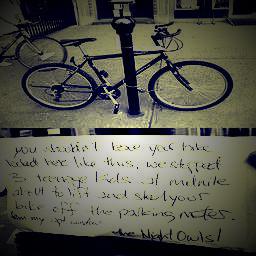 you shouldn't leave your bike
locked here like this, we stopped
3 teenage kids at midnite
abt to lift and steal your
bike off the parking meter.
from my apt window
the Night Owls!